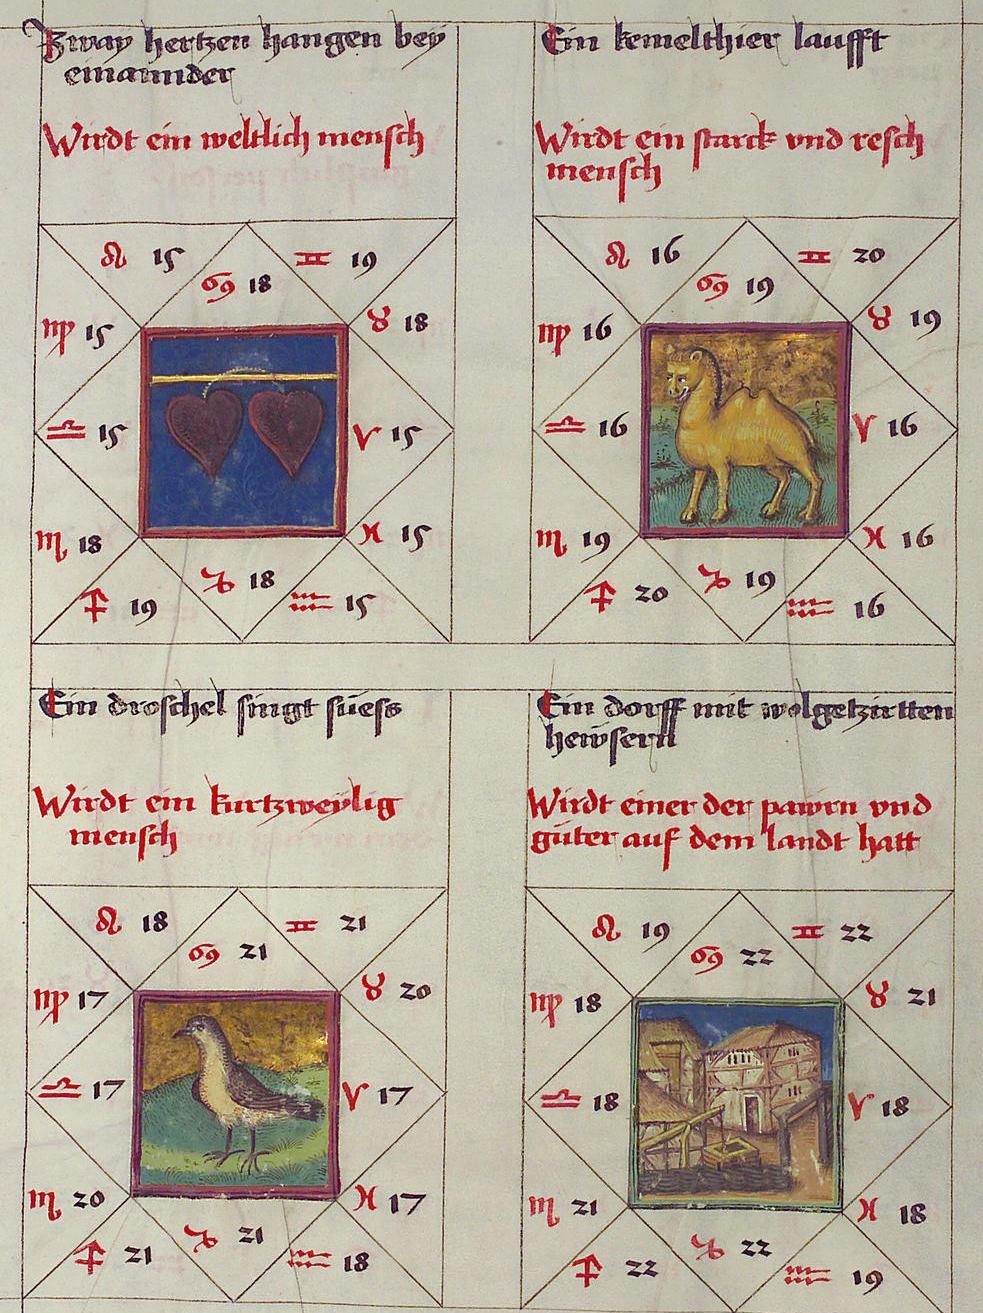 Zway hertzen hangen bey
einannder
Wirdt ein weltlich mensch
♌ 15
♋ 18
♊ 19
♍ 15
♉ 18
♎ 15
♈ 15
♏ 18
♓ 15
♐ 19
♑ 18
♒ 15
Ein kemelthier laufft
Wirdt ein starck vnd resch
mensch
♌ 16
♋ 19
♊ 20
♍ 16
♉ 19
♎ 16
♈ 16
♏ 19
♓ 16
♐ 20
♑ 19
♒ 16
Ein droschel singt süess
Wirdt ein kurtzweylig
mensch
♌ 18
♋ 21
♊ 21
♍ 17
♉ 20
♎ 17
♈ 17
♏ 20
♓ 17
♐ 21
♑ 21
♒ 18
Ein dorff mit wolgetzirtten
hewsern
Wirdt einer der pawrn vnd
güter auf dem landt hatt
♌ 19
♋ 22
♊ 22
♍ 18
♉ 21
♎ 18
♈ 18
♏ 21
♓ 18
♐ 22
♑ 22
♒ 19